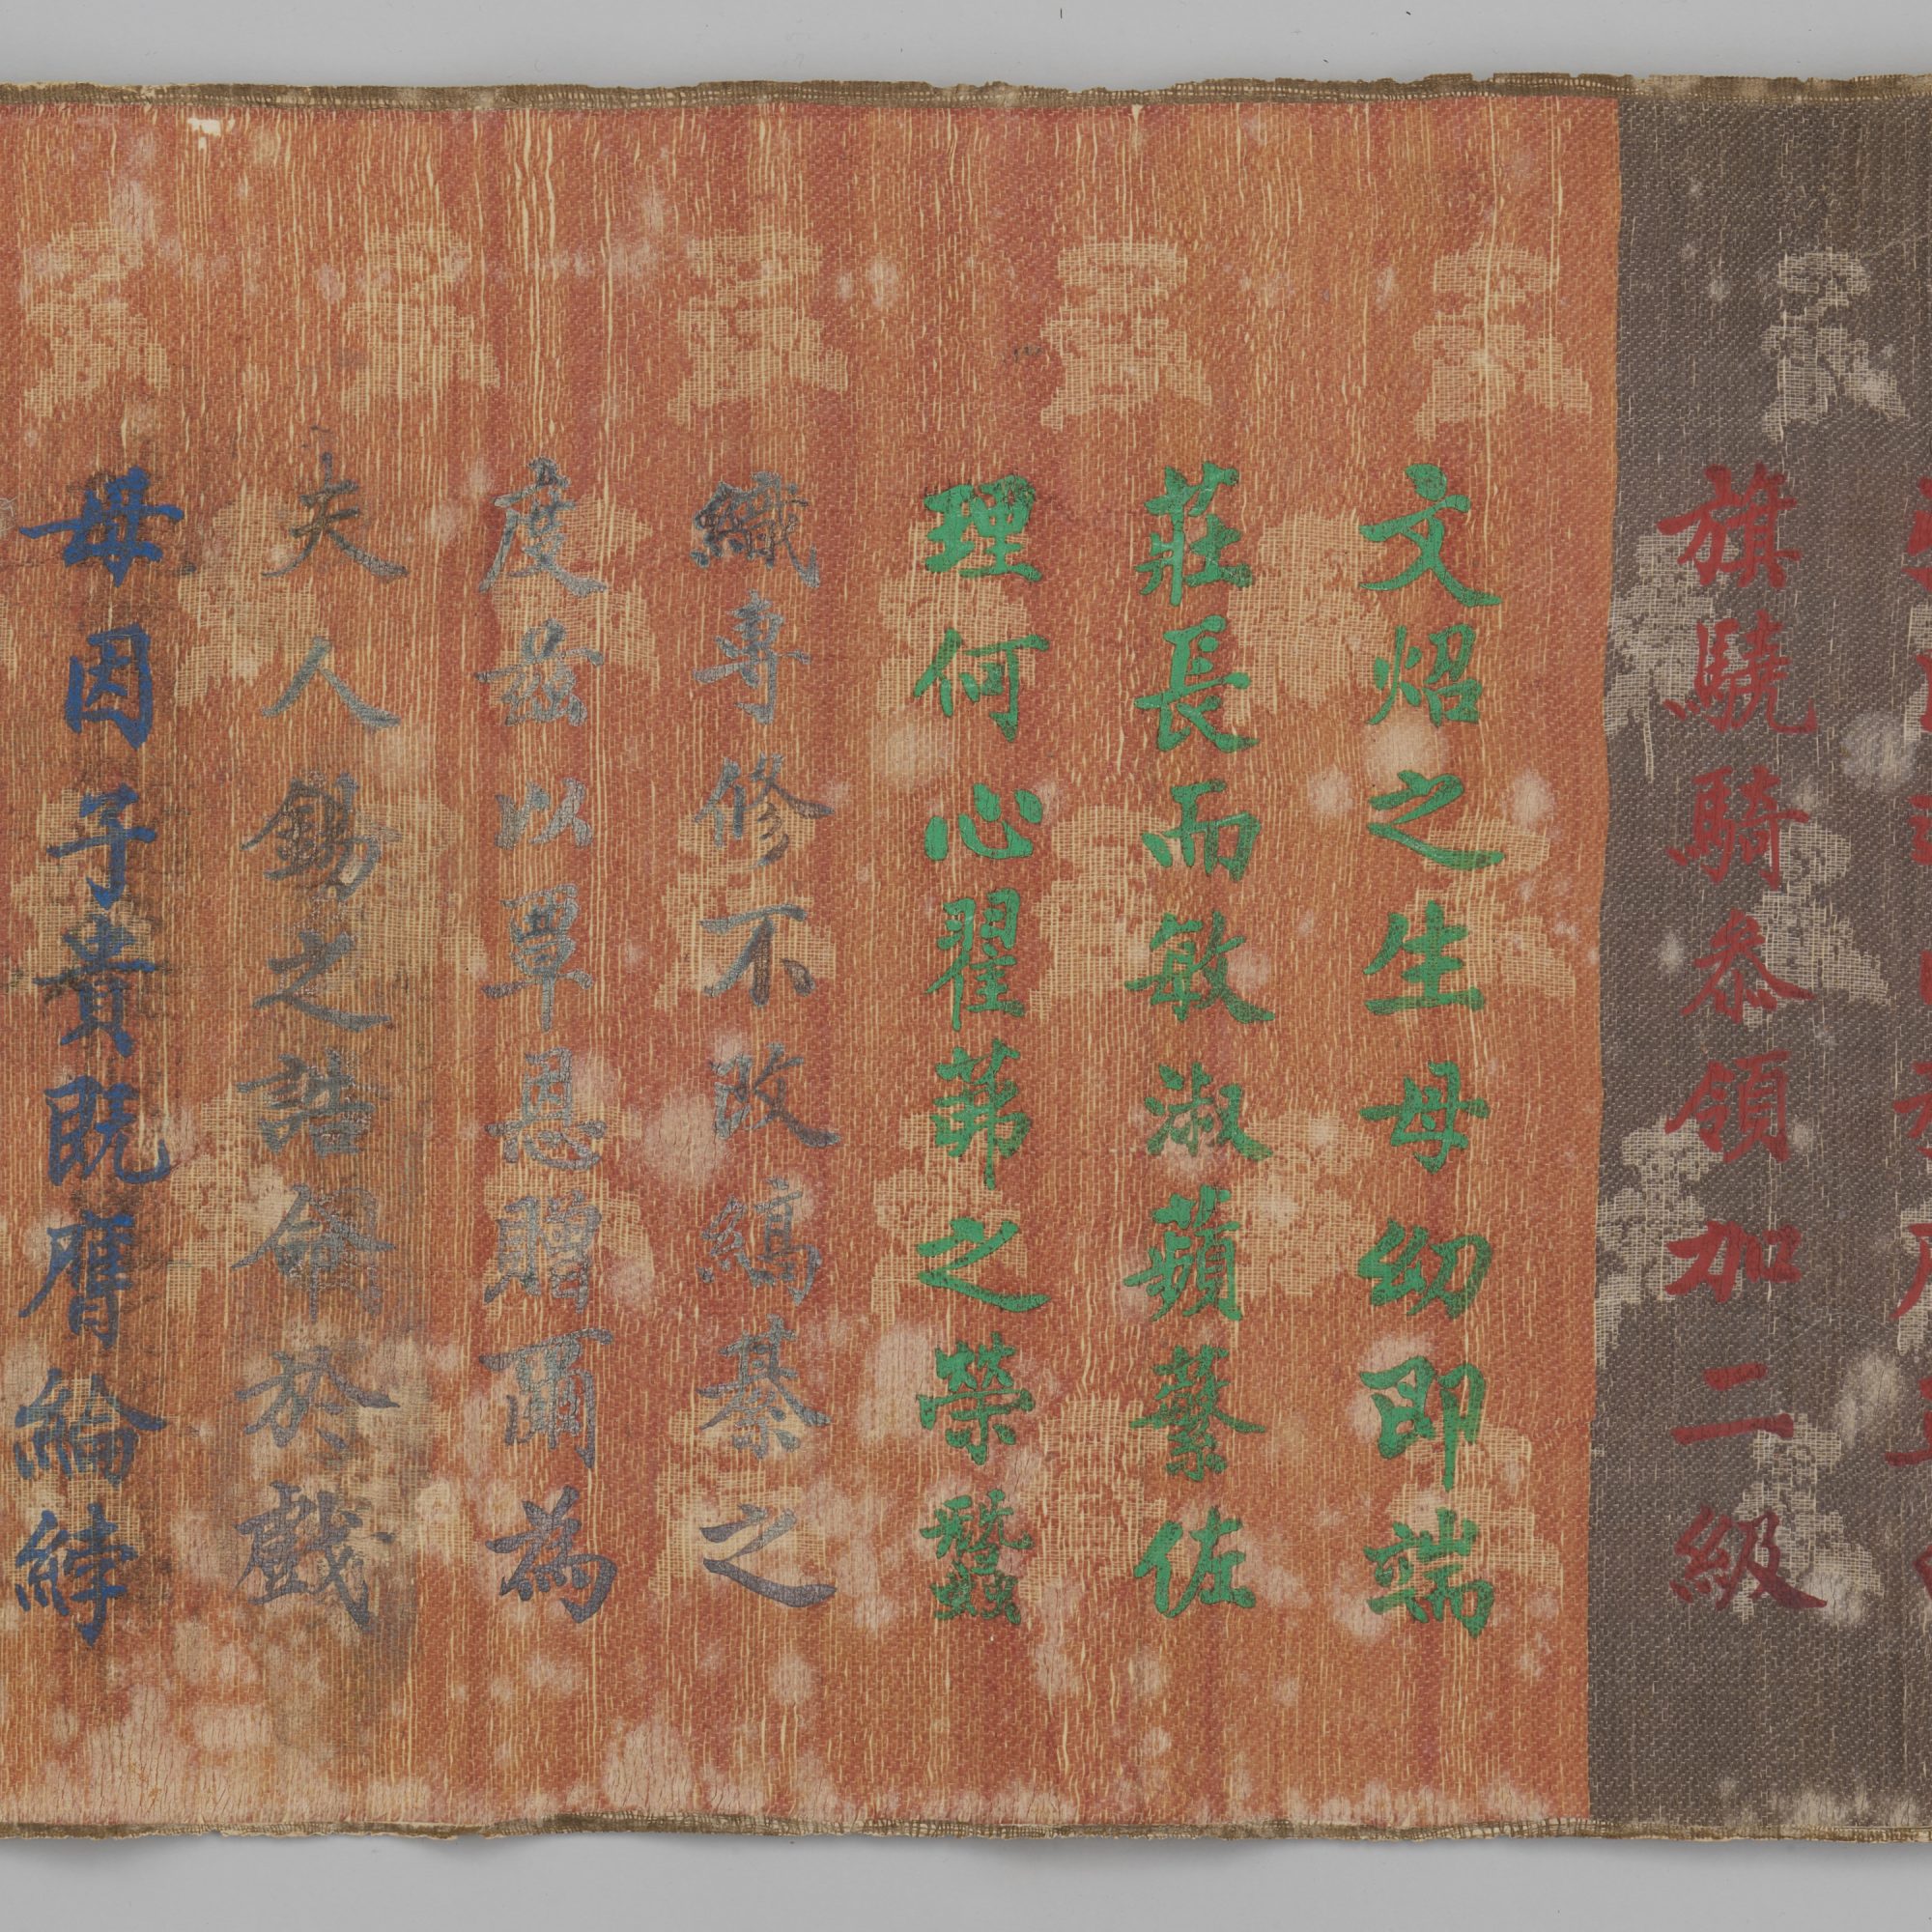 旗驍騎叅領加二級
文炤之生母幼即端
莊長而敏淑蘋蘩佐
理何心翟茀之榮蠶
織專修不改縞綦之
度兹以覃恩贈爾為
夫人錫之誥命於戲
母因子貴既膺綸綍